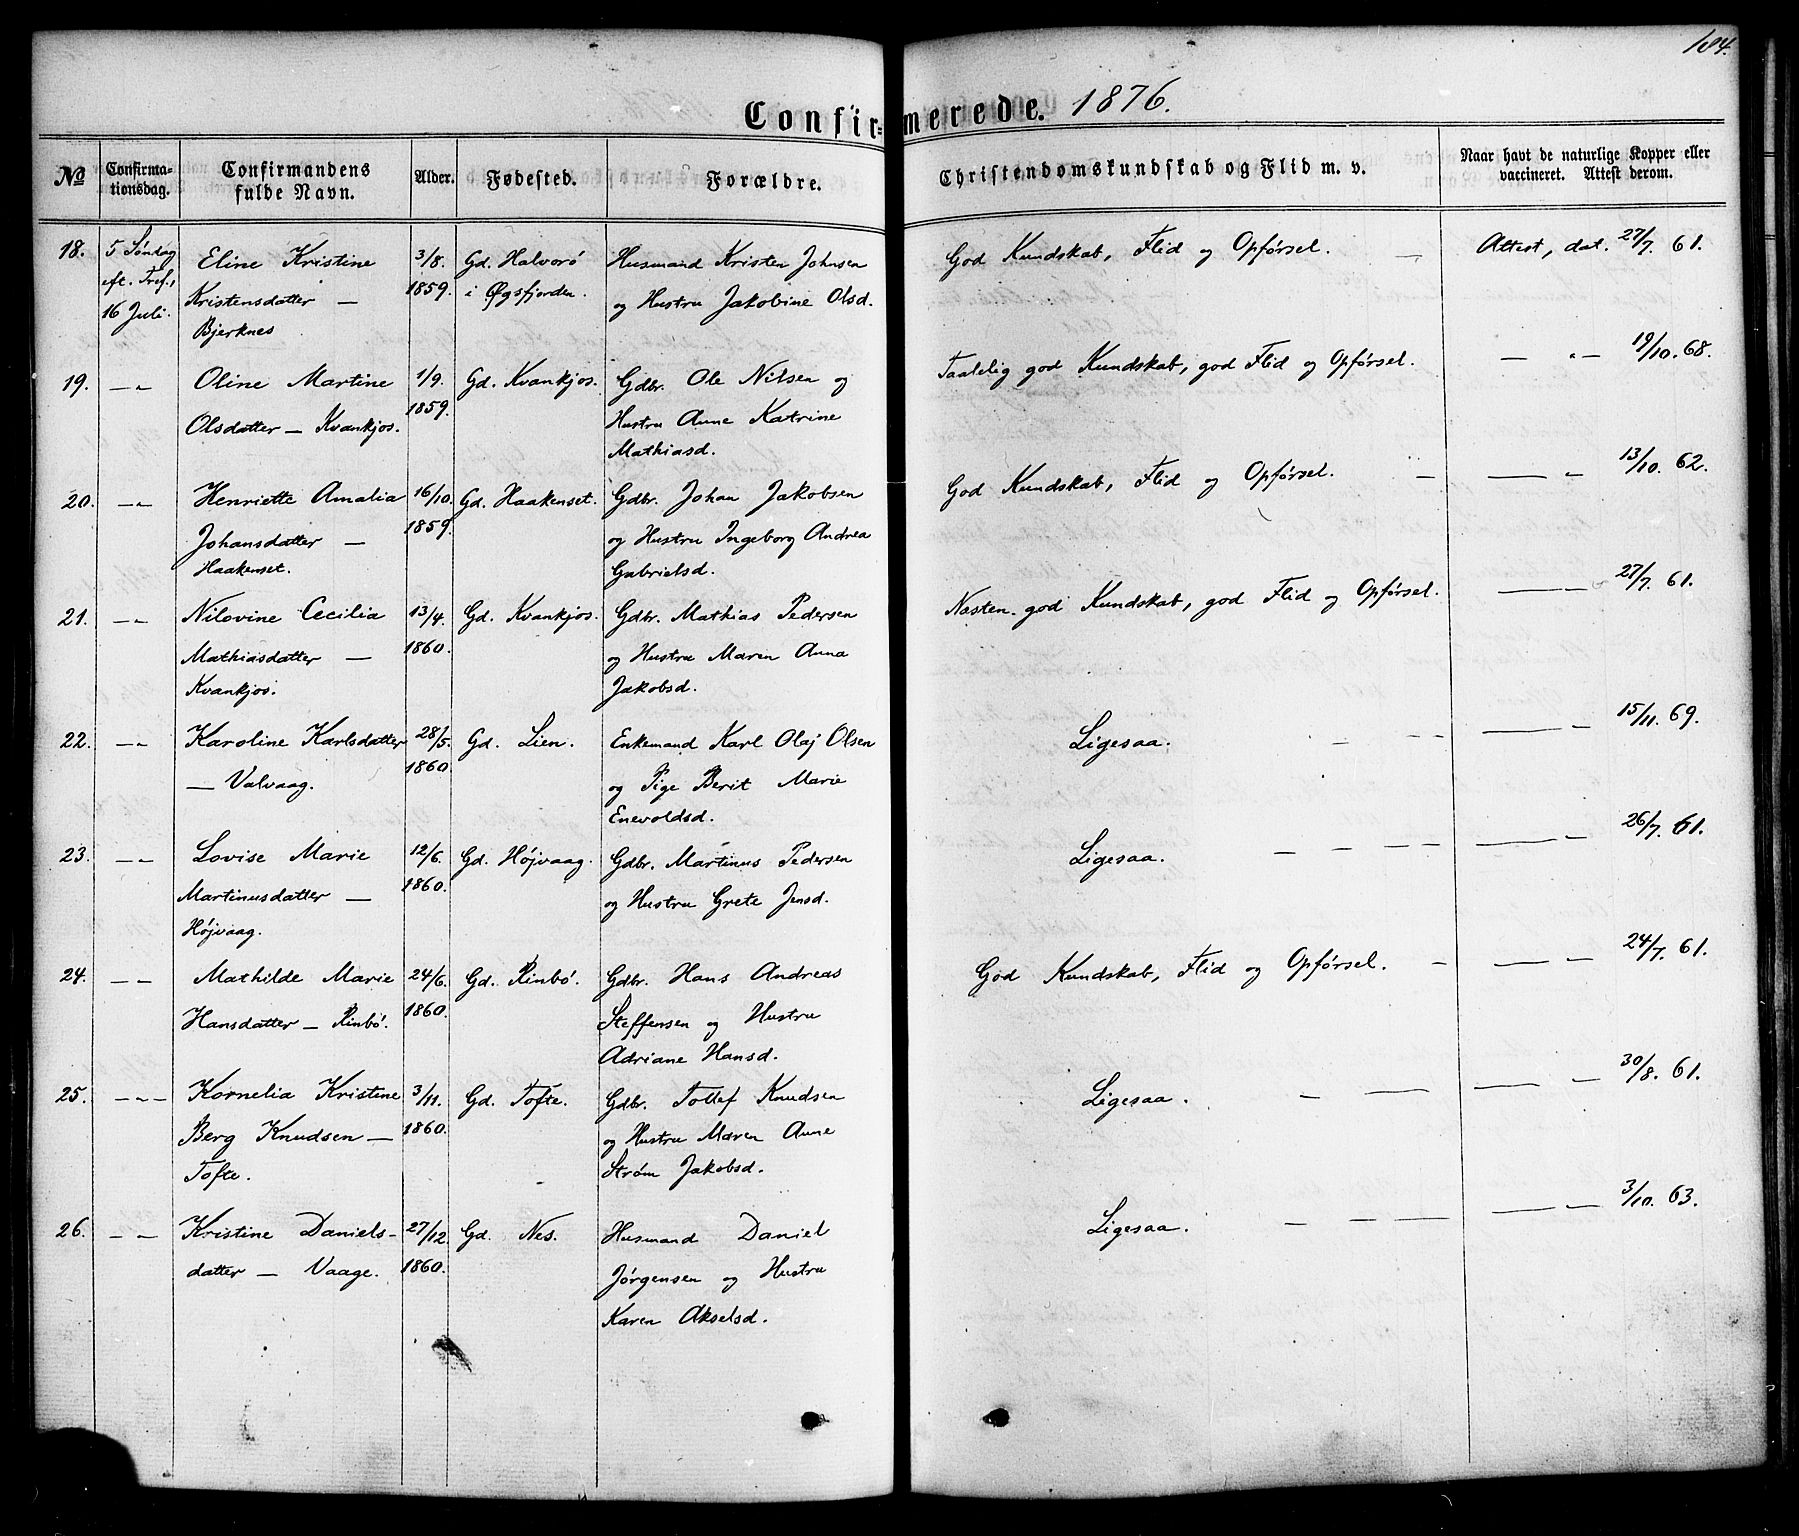 184.
Confirmerede. 1876.
No
Confirma-
tionsdag.
Confirmandens
fulde Navn.
Alder.
Fødested.
Forældre.
Christendomskundskab og Flid m. v.
Naar havt de naturlige Kopper eller
vaccineret. Attest derom.
18. 5 Søndag Eline Kristine 3/8. Gd. Halvorø Husmand Kristen Johnsen God Kundskab, Flid og Opførsel. — Attest, dat. 27/7. 61.
eft. Tref., Kristensdatter — 1859. i Øgsfjorden. og Hustru Jakobine Olsd.
16 Juli. Bjerknes
19. —„— Oline Martine 1/9. Gd. Kvankjos. Gdbr. Ole Nilsen og Taalelig god Kundskab, god Flid og Opførsel. — „— 19/10. 68.
Olsdatter — Kvankjos. 1859. Hustru Anne Katrine
Mathiasd.
20. —„— Henriette Amalia 16/10. Gd. Haakenset. Gdbr. Johan Jakobsen God Kundskab, Flid og Opførsel. — — „ 13/10. 62.
Johansdatter — 1859. og Hustru Ingeborg Andrea
Haakenset. Gabrielsd.
21. —„— Nilovine Cecilia 13/4. Gd. Kvankjos. Gdbr. Mathias Pedersen Næsten god Kundskab, god Flid og Opførsel. — — 27/7. 61.
Mathiasdatter — 1860. og Hustru Maren Anna
Kvankjos. Jakobsd.
22. —„— Karoline Karlsdatter 28/5. Gd. Lien. Enkemand Karl Olaj Olsen Ligesaa. — — — — — 15/11. 69.
— Valvaag. 1860. og Pige Berit Marie
Enevoldsd.
23. — — Lovise Marie 12/6. Gd. Højvaag. Gdbr. Martinus Pedersen Ligesaa. — — — — — — 26/7. 61.
Martinusdatter — 1860. og Hustru Grete Jensd.
Højvaag.
24. — — Mathilde Marie 24/6. Gd. Rinbø. Gdbr. Hans Andreas God Kundskab, Flid og Opførsel. — — — 24/7. 61.
Hansdatter — Rinbø. 1860. Steffensen og Hustru
Adriane Hansd.
25. —„— Kornelia Kristine 3/11. Gd. Tofte. Gdbr. Tollef Knudsen Ligesaa. — — — — — 30/8. 61.
Berg Knudsen — 1860. og Hustru Maren Anne
Tofte. Strøm Jakobsd.
26. — — Kristine Daniels- 27/12 Gd. Nes. Husmand Daniel Ligesaa. — — — — — — 3/10. 63.
datter — Vaage. 1860. Jørgensen og Hustru
Karen Akselsd.